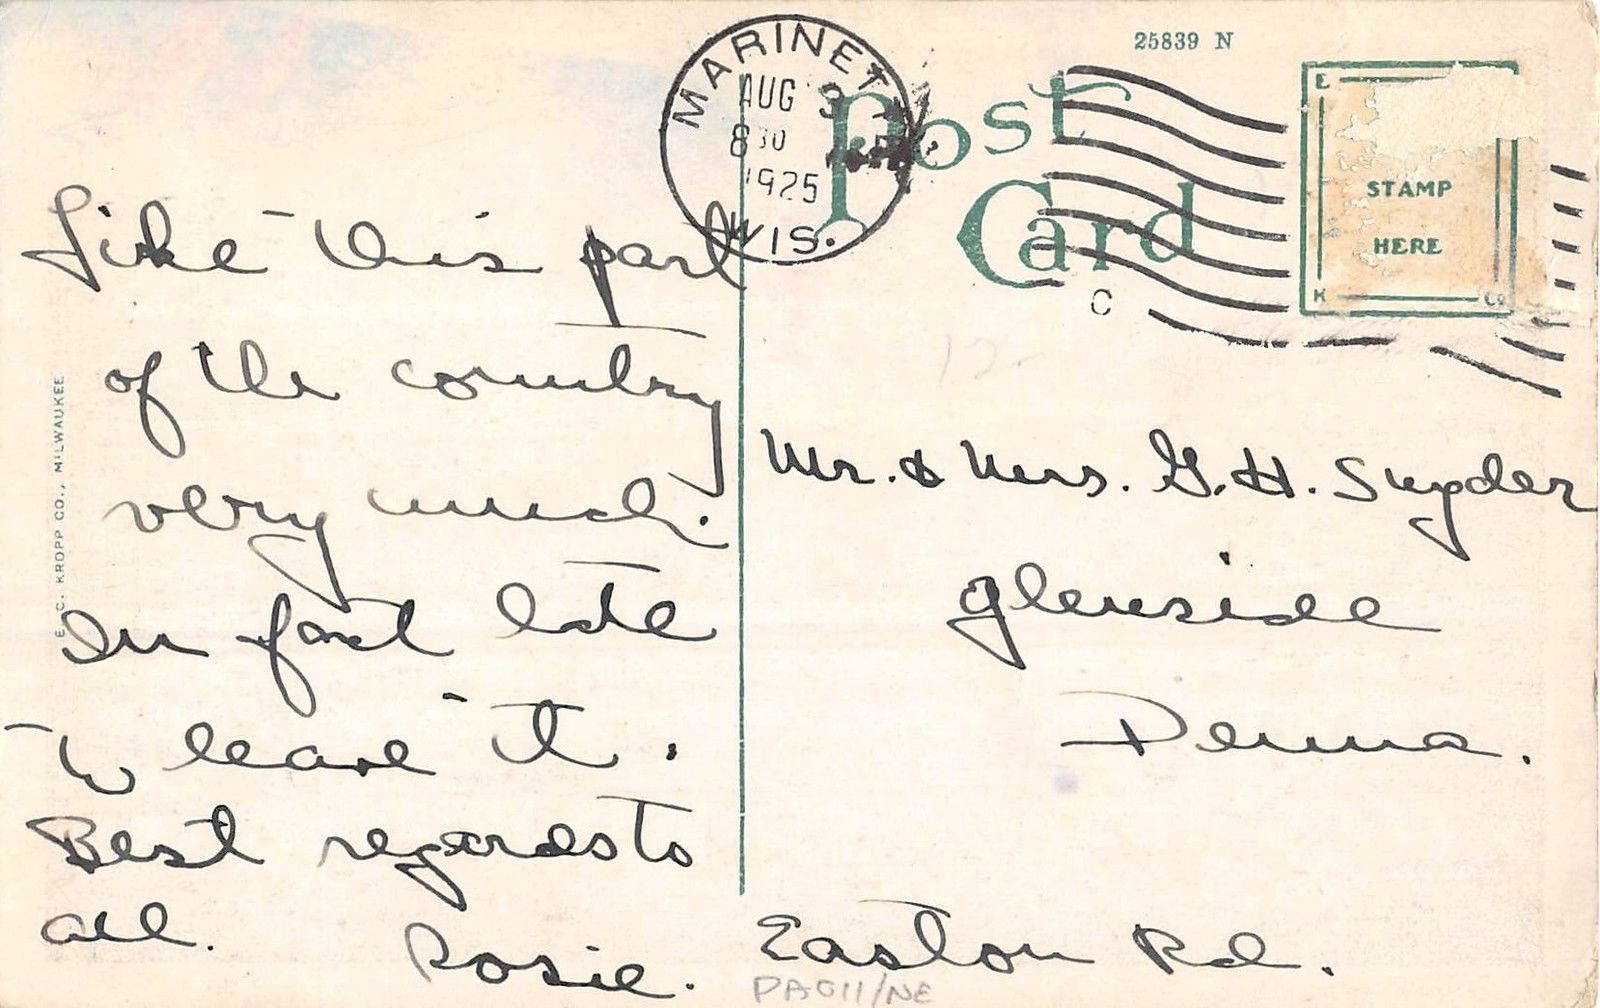 25839 N
MARINETTE
AUG 3
8 30
1925
WIS.
Post
Card
C
E
STAMP
HERE
K Co
Like this part
of the country
very much.
In fact late
to leave it.
Best regards to
all.
Rosie.
E. C. KROPP CO., MILWAUKEE
Mr. & Mrs. G. H. Snyder
Glenside
Penna.
Easton Rd.
PA011/NE